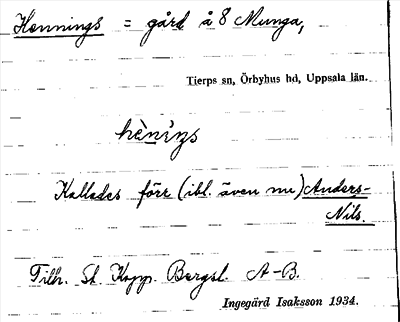 Hennings = gård å 8 Munga,
Tierps sn, Örbyhus hd, Uppsala län.
hèniŋs
Kallades förr (ibl. även nu) Anders-
Nils.
Tillh. St. Kopp. Bergsl. A-B.
Ingegärd Isaksson 1934.